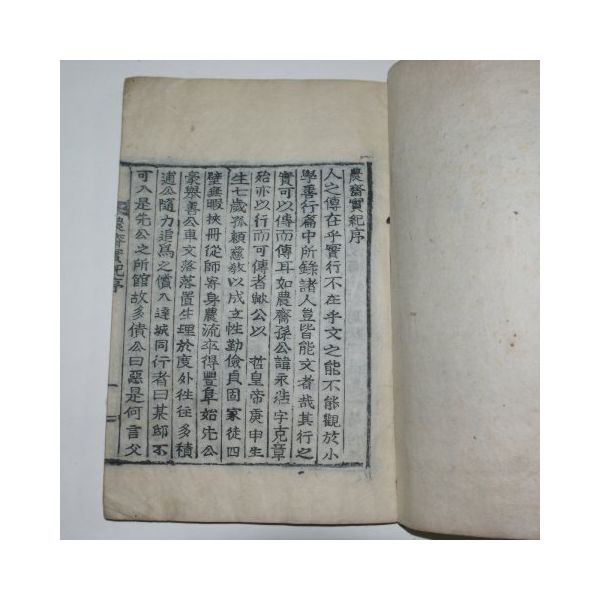 農齋實紀序
人之傳在乎實行不在乎文之能不能觀於小
學善行篇中所錄諸人豈皆能文者哉其行之
實可以傳而傳耳如農齋孫公諱永 字克章
殆亦以行而可傳者歟公以 哲皇帝庚申生
生七歲孤賴慈敎以成立性勤儉貞固家徒四
壁無暇挾冊從師寄身農流卒得豐阜始先公
豪擧善公車文落落置生理於度外往往多積
逋公隨力追爲之償入達城同行者曰某邸不
可入是先公之所館故多債公曰惡是何言父
農齋實紀序
一